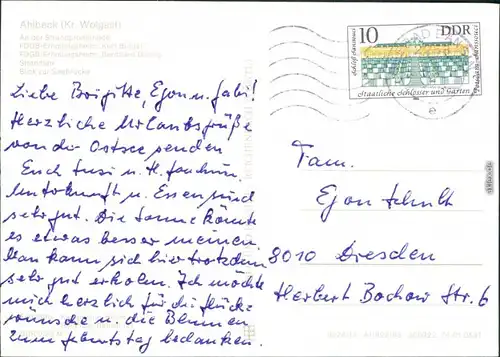 Ahlbeck (Kr. Wolgast)
An der Strandpromenade
FDGB-Erholungsheim
FDGB-Erholungsheim
Strand
Blick zur Seebrücke
10 DDR
Schloß Sanssouci
Staatliche Schlösser und Gärten
Potsdam-Sanssouci
Liebe Brigitte, Egon u. Gabi!
Herzliche Urlaubsgrüße
von der Ostsee senden
Euch Susi u. H. Joachim.
Unterkunft u. Essen sind
sehr gut. Die Sonne könnte
es etwas besser meinen.
Man kann sich hier trotzdem
sehr gut erholen. Ich möchte
mich herzlich für die Glück-
wünsche u. die Blumen
zum Geburtstag bedanken.
Fam.
Egon Schult
8010 Dresden
Herbert Bochow Str. 6